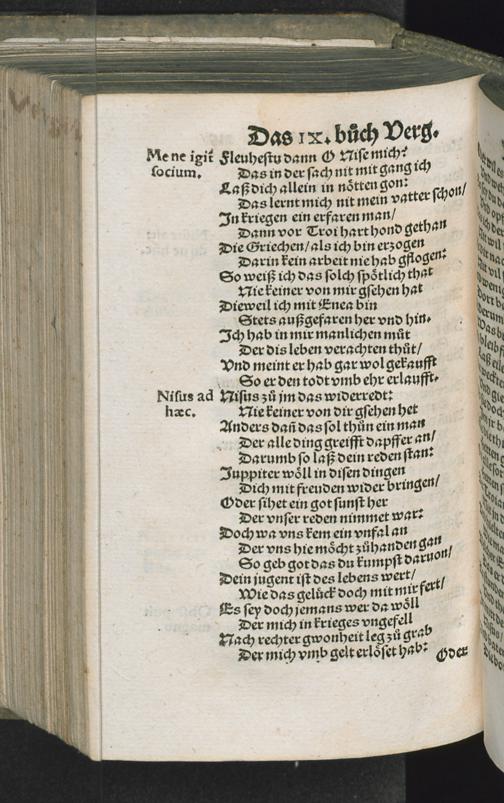 Das IX. bůch Verg.
Me ne igit̃
socium.
Fleuhestu dann O Nise mich?
Das in der sach nit mit gang ich
Laß dich allein in nötten gon:
Das lernt mich nit mein vatter schon/
In kriegen ein erfaren man/
Dann vor Troi hart hond gethan
Die Griechen/ als ich bin erzogen
Darin kein arbeit nie hab gflogen:
So weiß ich das solch spötlich that
Nie keiner von mir gsehen hat
Dieweil ich mit Enea bin
Stets außgefaren her vnd hin.
Ich hab in mir manlichen müt
Der dis leben verachten thüt/
Vnd meint er hab gar wol gekaufft
So er den todt vmb ehr erlaufft.
Nisus ad
hæc.
Nisus zů jm das widerredt:
Nie keiner von dir gsehen het
Anders dañ das sol thůn ein man
Der alle ding greifft dapffer an/
Darumb so laß dein reden stan:
Juppiter wöll in disen dingen
Dich mit freuden wider bringen/
Oder sihet ein got sunst her
Der vnser reden nimmet war:
Doch wa vns kem ein vnfal an
Der vns hie möcht zůhanden gan
So geb got das du kumpst daruon/
Dein jugent ist des lebens wert/
Wie das gelück doch mit mir fert/
Es sey doch jemans wer da wöll
Der mich in krieges vngefell
Nach rechter gwonheit leg zů grab
Der mich vmb gelt erlöset hab:
Oder